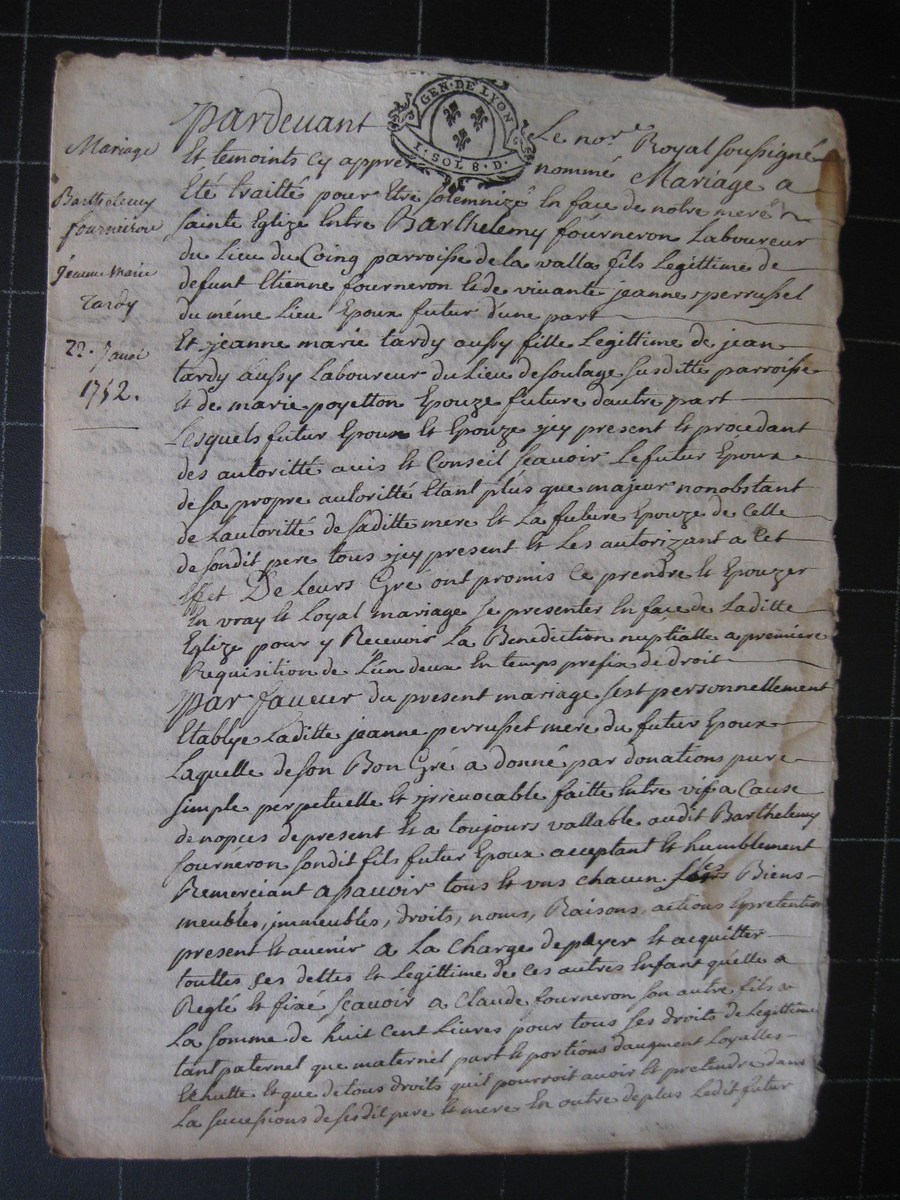 GEN·DE LYON
1·SOL 8·D·
Mariage
Barthelemy
fourneiron
Jeanne Marie
Tardy
22. Janvi
1752.
Pardevant Le nore Royal soussigné
Et temoints cy appres nommé Mariage a
Eté traitté pour Etre solemnizé En face de notre mere
sainte Eglize Entre Barthelemy fourneron Laboureur
du Lieu du Coing parroisse de la valla fils Legittime de
defunt Etienne fourneron & de vivante jeanne perrussel
du méme Lieu Epoux futur d'une part
Et jeanne marie tardy aussy fille Legitime de jean
tardy aussy Laboureur du Lieu de soulage susditte parroisse
Et de marie poyetton Epouze future dautre part
Lesquels futur Epoux Et Epouze jcy present et procedant
des autoritté avis et Conseil scavoir Le futur Epoux
de sa propre autoritté Etant plus que majeur nonobstant
de Lautoritté de saditte mere Et La future Epouze de Celle
de sondit pere tous jcy present Et Les autorizant a Cet
Effet De Leurs Gré ont promis Ce prendre Et Epouzer
En vray Et Loyal mariage se presenter En face de Laditte
Eglize pour y Recevoir La Benediction nuptialle a premiere
Requisition de L'un deux En temps prefix de droit
Par faveur du present mariage sest personnellement
Etablye Laditte jeanne perrusset mere du futur Epoux
Laquelle de son Bon Gré a donné par donations pure
simple perpetuelle Et jrrevocable faitte Entre vif a Cause
de nopces de present Et a toujours vallable audit Barthelemy
fourneron sondit fils futur Epoux acceptant Et humblement
Remerciant a scavoir tous Et uns chacun Biens
meubles, immeubles, droits, noms, Raisons, actions Epretention
present Et avenir a La Charge de payer Et acquitter
touttes ses dettes Et Legittime de ces autres Enfant quelle a
Reglé Et fixé scavoir a Claude fourneron son autre fils a
La somme de huit Cent Livres pour tous ses droits de Legittime
tant paternel que maternel part Et portions daugment Loyalles
Echutte Et que de tous droits quil pourroit avoir Et pretendre dans
La successions de sesdit pere Et mere En outre de plus Ledit futur